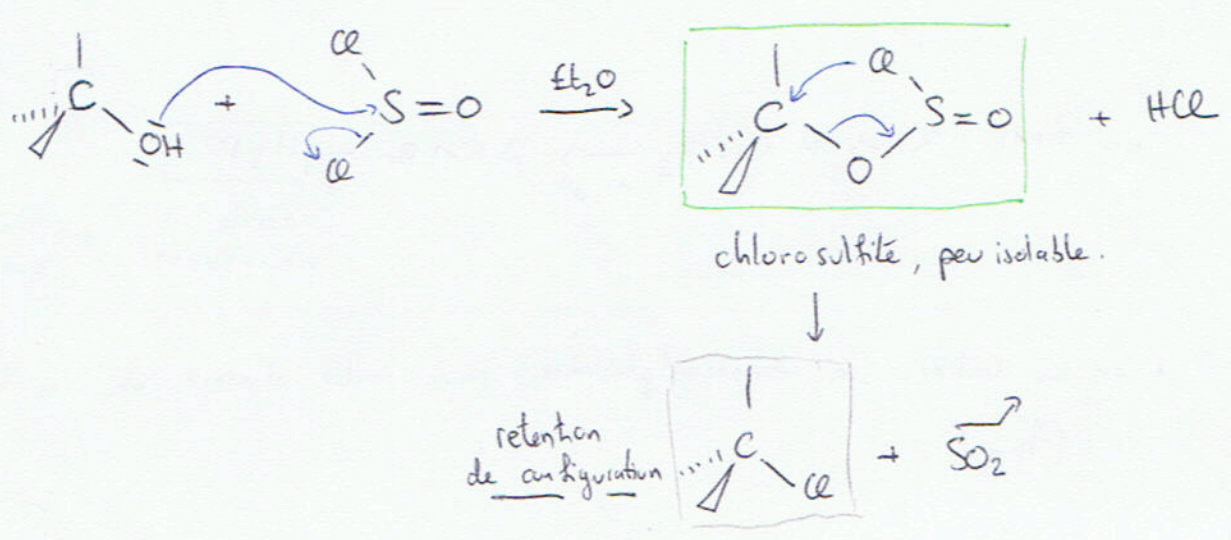 Cl
C
OH
+
S=O
Cl
Et₂O
C
O
Cl
S=O
+ HCl
chlorosulfite, peu isolable.
retention
de configuration
C
Cl
+ SO₂